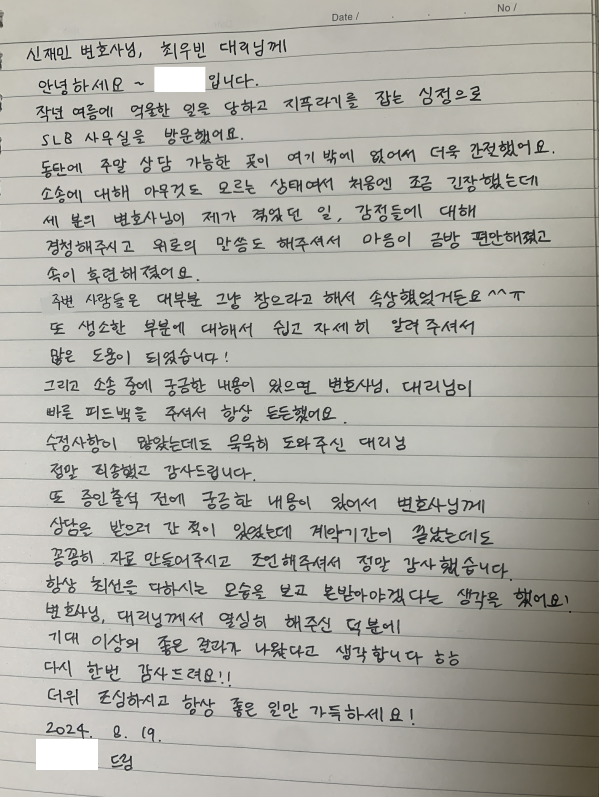 Date /
No /
신재민 변호사님, 최우빈 대리님께
안녕하세요 ~ 입니다.
작년 여름에 억울한 일을 당하고 지푸라기를 잡는 심정으로
SLB 사무실을 방문했어요.
동탄에 주말 상담 가능한 곳이 여기 밖에 없어서 더욱 간절했어요.
소송에 대해 아무것도 모르는 상태여서 처음엔 조금 긴장했는데
세 분의 변호사님이 제가 겪었던 일, 감정들에 대해
경청해주시고 위로의 말씀도 해주셔서 마음이 금방 편안해졌고
속이 후련해졌어요.
주변 사람들은 대부분 그냥 참으라고 해서 속상했었거든요^^ㅠ
또 생소한 부분에 대해서 쉽고 자세히 알려주셔서
많은 도움이 되었습니다!
그리고 소송 중에 궁금한 내용이 있으면 변호사님, 대리님이
빠른 피드백을 주셔서 항상 든든했어요.
수정사항이 많았는데도 묵묵히 도와주신 대리님
정말 죄송했고 감사드립니다.
또 증인출석 전에 궁금한 내용이 있어서 변호사님께
상담을 받으러 간 적이 있었는데 계약기간이 끝났는데도
꼼꼼히 자료 만들어주시고 조언해주셔서 정말 감사했습니다.
항상 최선을 다하시는 모습을 보고 본받아야겠다는 생각을 했어요!
변호사님, 대리님께서 열심히 해주신 덕분에
기대 이상의 좋은 결과가 나왔다고 생각합니다 ㅎㅎ
다시 한번 감사드려요!!
더위 조심하시고 항상 좋은 일만 가득하세요!
2024. 8. 19.
드림